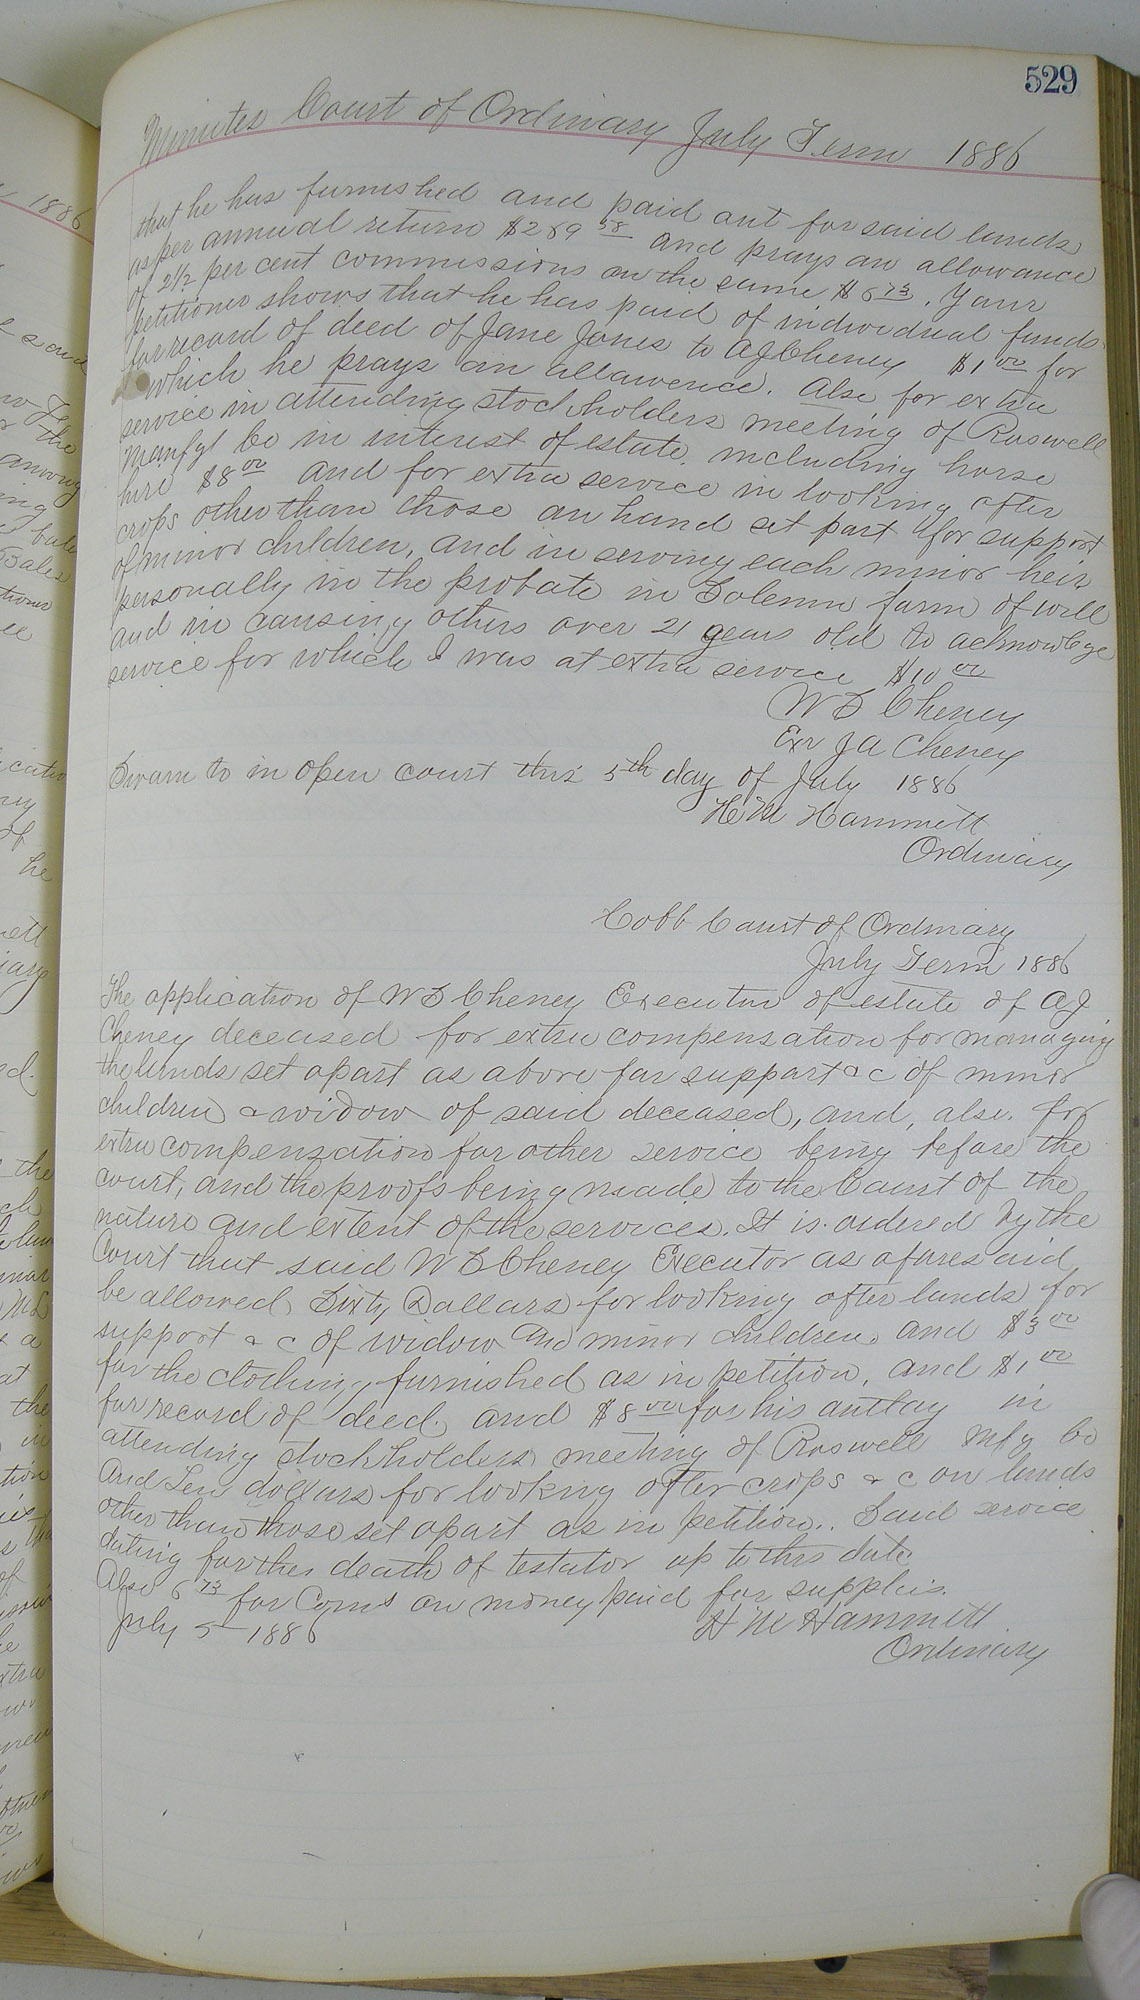 529
Minutes Court of Ordinary July Term 1886
that he has furnished and paid out for said lands
as per annual return $269 38 and prays an allowance
of 2½ per cent commissions on the same $6 73. Your
petitioner shows that he has paid of individual funds
for record of deed of Jane Jones to AJ Cheney $1 00 for
which he prays an allowence. Also for extra
service in attending stockholders meeting of Roswell
Manfgt Co in interest of estate. including horse
hire $8 00 and for extra service in looking after
crops other than those on hand set part for support
of minor children, and in serving each minor heir
personally in the probate in Solemn form of will
and in causing others over 21 years old to acknowlege
service for which I was at extra service $10 00
W S Cheney
Exr J A Cheney
Sworn to in open court this 5th day of July 1886
H M Hammett
Ordinary
Cobb Court of Ordinary
July Term 1886
The application of W S Cheney Executor of estate of A J
Cheney deceased for extra compensation for managing
the lands set apart as above for support & c of minor
children & widow of said deceased, and, also. for
extra compensation for other service being before the
court, and the proofs being made to the Court of the
nature and extent of the services. It is ordered by the
Court that said W S Cheney Executor as aforesaid
be allowed Sixty Dollars for looking after lands for
support & c of widow and minor children. and $3 00
for the clothing furnished as in petition, and $1 00
for record of deed. and $8 00 for his outlay in
attending stockholders meeting of Roswell Mfg Co
And Ten dollars for looking after crops & c on lands
other than those set apart as in petition.. Said service
dating for the death of testator up to this date
Also 6 73 for Coms on money paid for supplies.
July 5 1886
H M Hammett
Ordinary